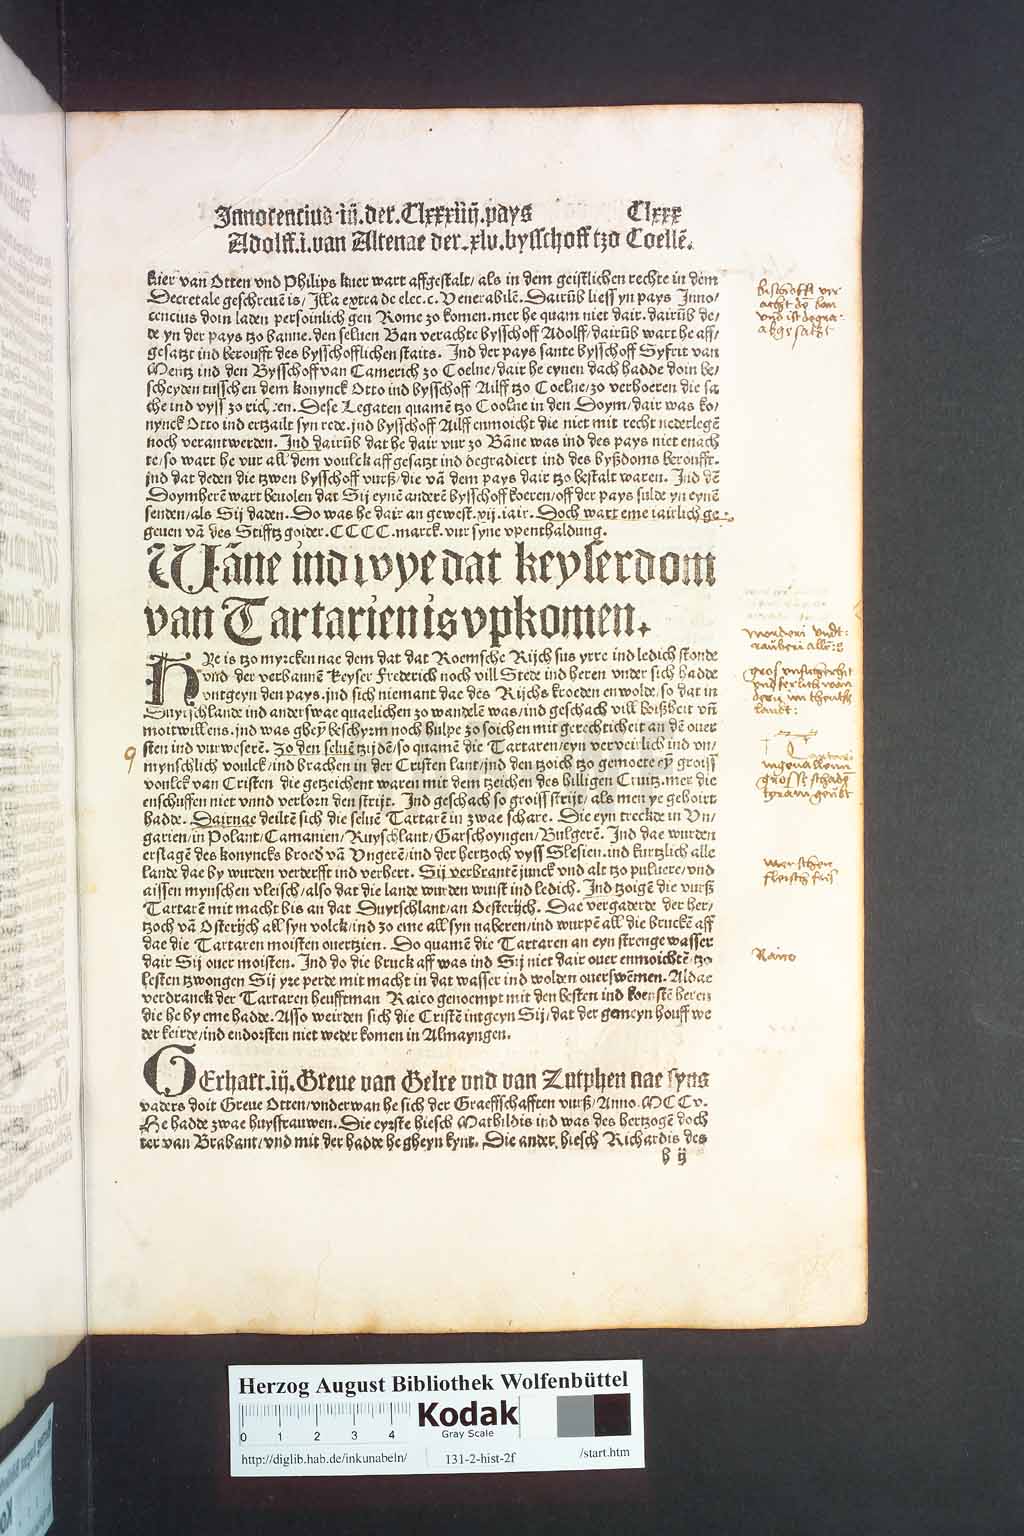 Innocencius iij. der. Clxxxiiij. pays Clxxx
Adolff. i. van Altenae der. xlv. bysschoff tzo Coellē.
kier van Otten vnd Philips kuer wart affgestalt/ als in dem geistlichen rechte in dem
Decretale geschreuē is/ Illa extra de elec. c. Venerabilē. Dairūb liess yn pays Inno/
cencius doin laden persoinlich gen Rome zo komen. mer he quam niet dair. dairūb de/
de yn der pays tzo banne. den seluen Ban verachte bysschoff Adolff/ dairūb wart he aff/
gesatzt ind beroufft des bysschofflichen staits. Ind der pays sante bysschoff Syfrit van
Mentz ind den Bysschoff van Camerich zo Coelne/ dair he eynen dach hadde doin be/
scheyden tusschen dem konynck Otto ind bysschoff Ailff tzo Coelne/ zo verhoeren die sa
che ind vyss zo richten. Dese Legaten quamē tzo Coolne in den Doym/ dair was ko/
nynck Otto ind ertzailt syn rede. ind bysschoff Ailff enmoicht die niet mit recht nederlegē
noch verantwerden. Ind dairūb dat he dair vur zo Bāne was ind des pays niet enach
te/ so wart he vur all dem voulck affgesatzt ind degradiert ind des byßdoms beroufft.
ind dat deden die tzwen bysschoff vurß/ die vā dem pays dair tzo bestalt waren. Ind dē
Doymherē wart beuolen dat Sij eynē anderē bysschoff koeren/ off der pays sulde yn eynē
senden/ als Sij daden. Do was he dair an gewest. xij. iair. Doch wart eme iairlich ge
geuen vā des Stifftz goider. CCCC. marck. vur syne vpenthaldung.
Wāne ind wye dat keyserdom
van Tartarien is vpkomen.
HYe is tzo myrcken nae dem dat dat Roemsche Rijch sus yrre ind ledich stonde
vnd der verbannē keyser Frederich noch vill Stede ind heren vnder sich hadde
vntgeyn den pays. ind sich niemant dae des Rijchs kroeden enwolde/ so dat in
Duytschlande ind anderswae quaelichen zo wandelē was/ ind geschach vill boißheit vñ
moitwillens. ind was ghey beschyrm noch hulpe zo soichen mit gerechticheit an dē ouer
sten ind vurweserē. Zo den seluē tzijdē/ so quamē die Tartaren/ eyn verveirlich ind vn/
mynschlich voulck/ ind brachen in der Cristen lant/ ind den tzoich tzo gemoete eȳ groiss
voulck van Cristen die getzeichent waren mit dem tzeichen des billigen Cruitz. mer die
enschuffen niet vnnd verlorn den strijt. Ind geschach so groiss strijt/ als men ye gehoirt
hadde. Dairnae deiltē sich die seluē Tartarē in zwae schare. Die eyn treckde in Vn/
garien/ in Polant/ Camanien/ Ruyschlant/ Garschoyngen/ Bulgerē. Ind dae wurden
erslagē des konyncks broed vā Vngerē/ ind der hertzoch vyss Slesien. ind kurtzlich alle
lande dae by wurden verderfft ind verhert. Sij verbrantē junck vnd alt tzo puluere/ vnd
aissen mynschen vleisch/ also dat die lande wurden wuist ind ledich. Ind tzoigē die vurß
Tartarē mit macht bis an dat Duytschlant/ an Oesterijch. Dae vergaderde der her/
tzoch vā Osterijch all syn volck/ ind zo eme all syn naberen/ ind wurpē all die bruckē aff
dae die Tartaren moisten ouertzien. Do quamē die Tartaren an eyn strenge wasser
dair Sij ouer moisten. Ind do die bruck aff was ind Sij niet dair ouer enmoichtē tzo
lesten tzwongen Sij yre perde mit macht in dat wasser ind wolden ouerswēmen. Aldae
verdranck der Tartaren heufftman Raico genoempt mit den besten ind koenstē heren
die he by eme hadde. Asso weirden sich die Cristē intgeyn Sij/ dat der gemeyn houff we
der keirde/ ind endorsten niet weder komen in Almayngen.
GErhart. iij. Greue van Gelre vnd van Zutphen nae syns
vaders doit Greue Otten/ vnderwan he sich der Graeffschafften vurß/ Anno. MCC v.
He hadde zwae huysfrauwen. Die eyrste hiesch Mathildis ind was des hertzogē doch
ter van Brabant/ vnd mit der hadde he gheyn kynt. Die ander hiesch Richardis des
h ij
Raico
Herzog August Bibliothek Wolfenbüttel
0 1 2 3 4
Kodak
Gray Scale
http://diglib.hab.de/inkunabeln/ 131-2-hist-2f /start.htm